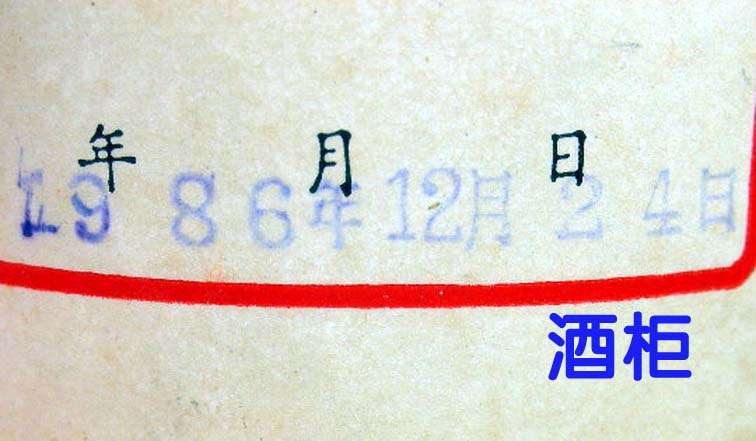 年 月 日
1986年12月24日
酒柜